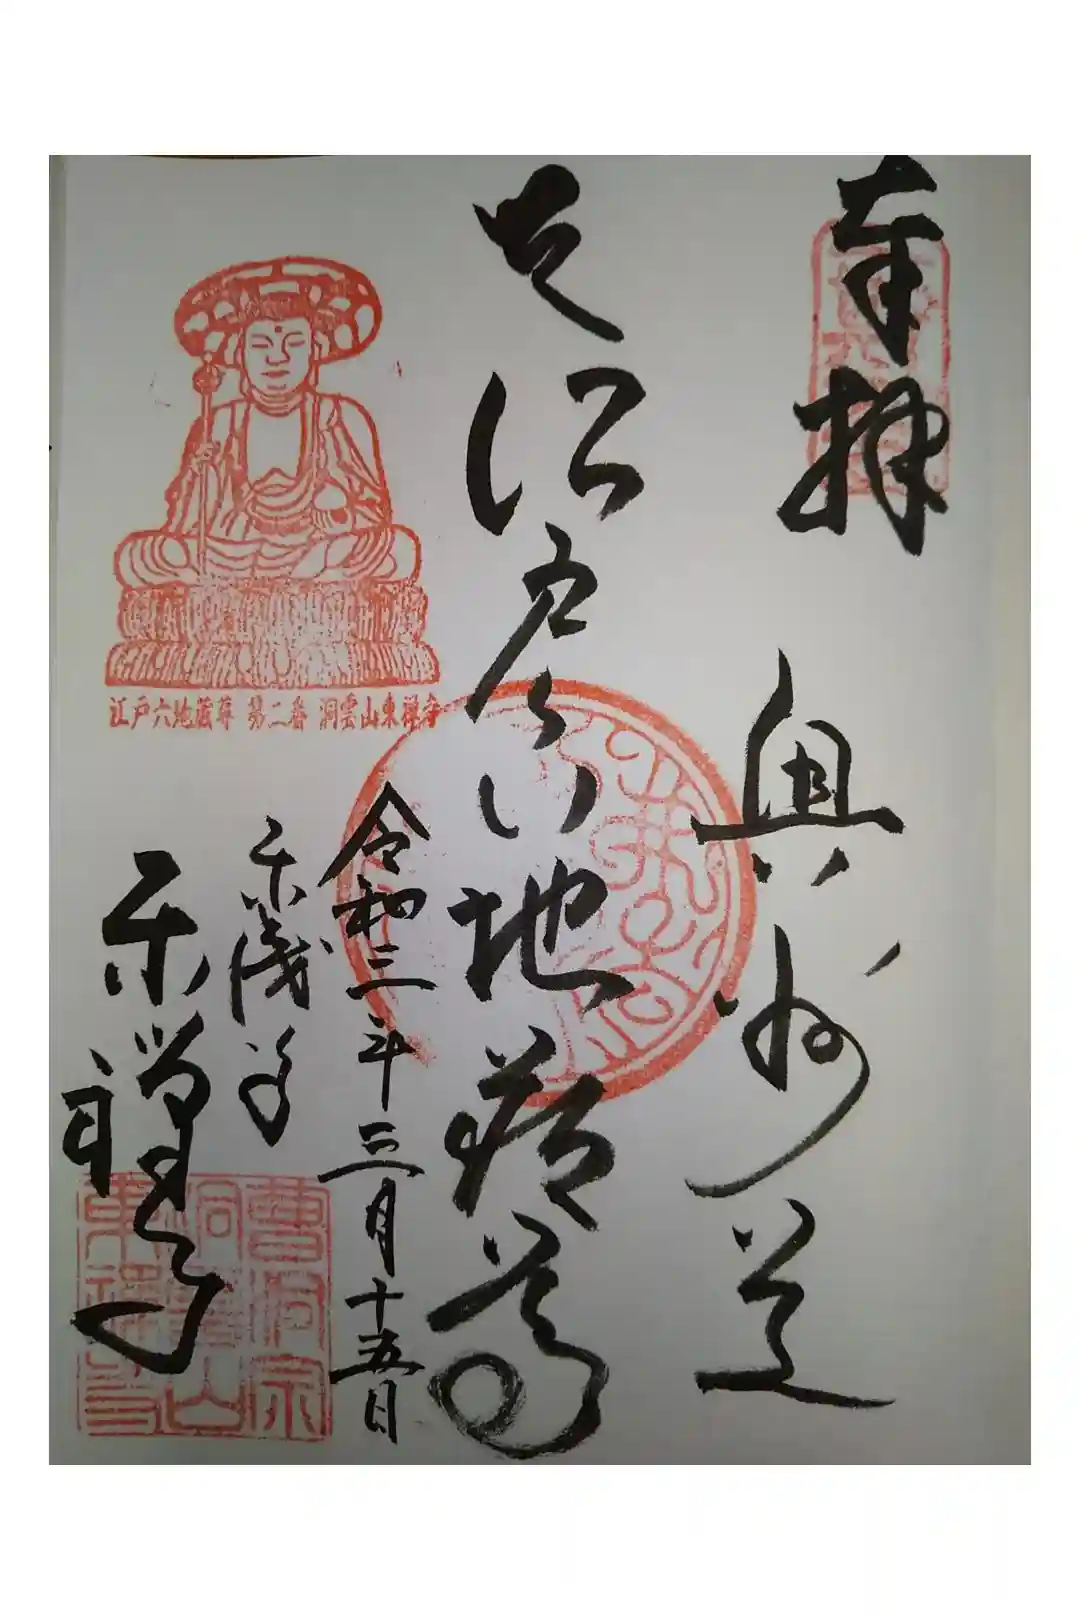 奉拝
奥州道
江戸六地蔵尊
令和三年三月十五日
東浅草
東禅寺
江戸六地蔵尊 第二番 洞雲山東禅寺
曹洞宗
洞雲山
東禅寺